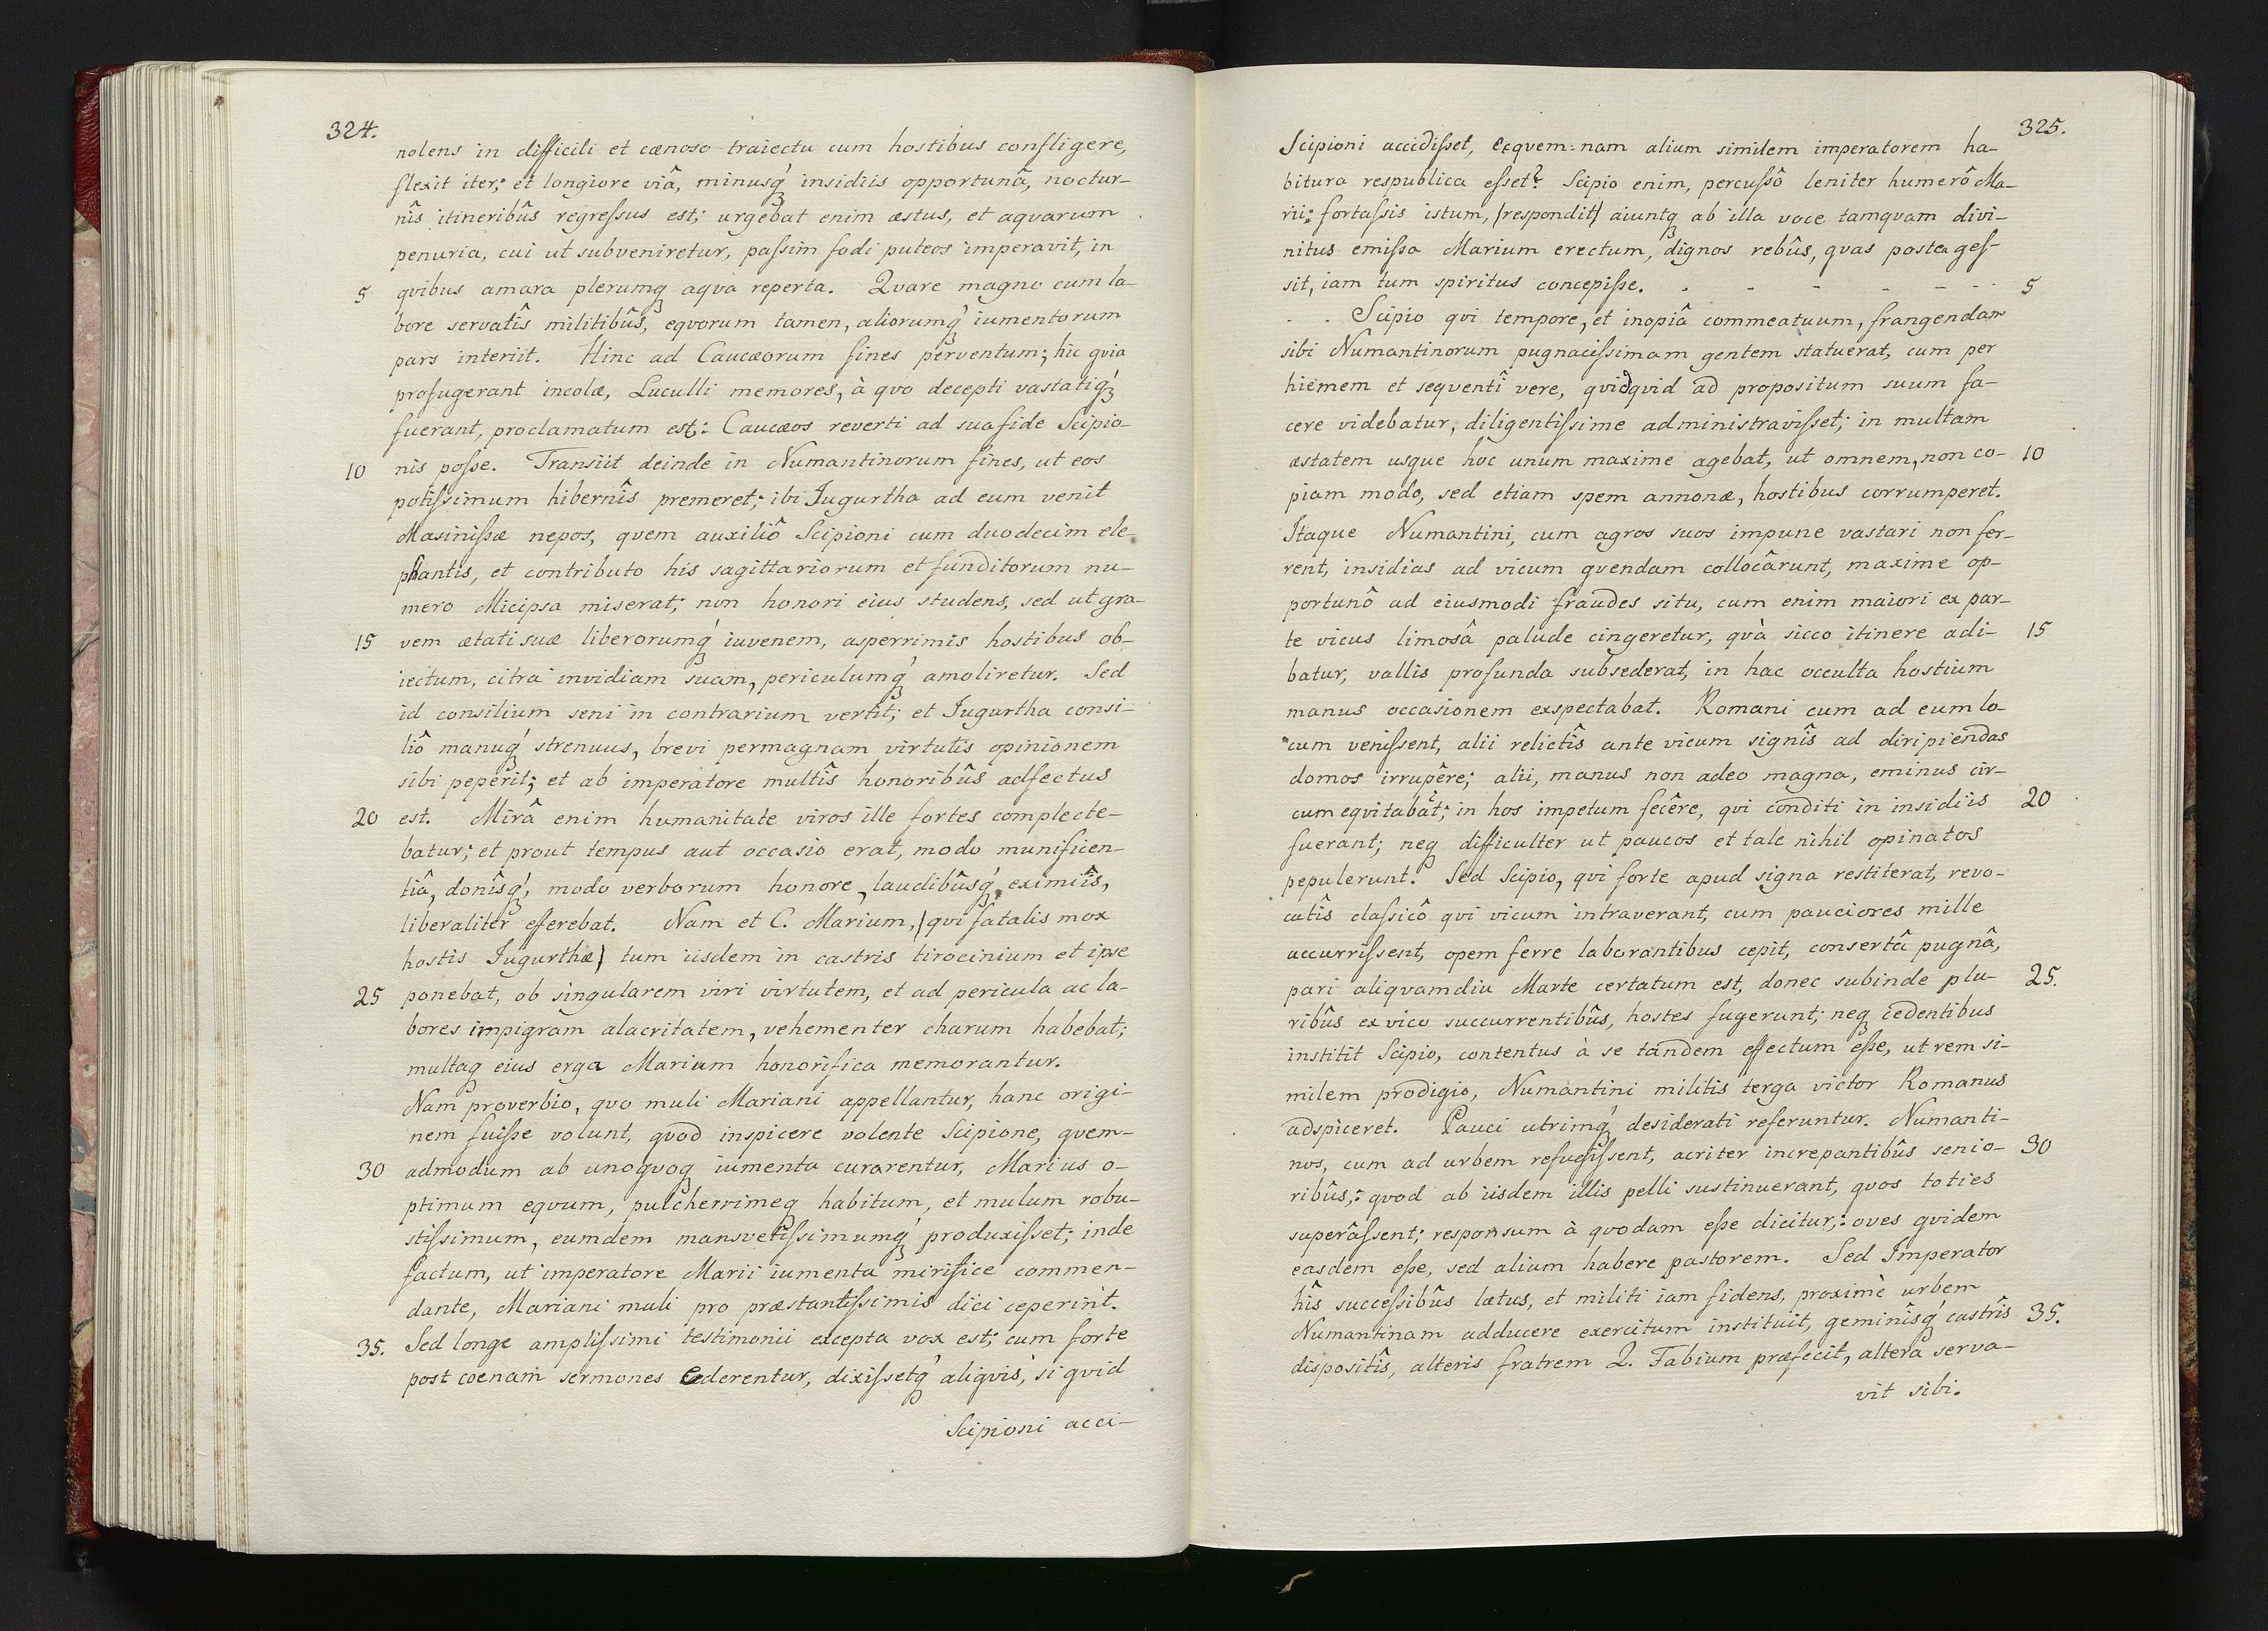 324.
nolens in difficili et cænoso traiectu cum hostibus confligere,
flexit iter; et longiore viâ, minusq́ꝫ insidiis opportunâ, noctur-
nîs itineribûs regreſsus est; urgebat enim æstus, et aqvarum
penuria, cui ut subveniretur, paſsim fodi puteos imperavit, in
5 qvibus amara plerumqꝫ aqva reperta. Qvare magno cum la-
bore servatîs militibûs, eqvorum tamen, aliorumq́ꝫ iumentorum
pars interiit. Hinc ad Caucæorum fines perventum; hic qvia
profugerant incolæ, Luculli memores, à qvo decepti vastatiq́ꝫ
fuerant, proclamatum est: Caucæos reverti ad sua fide Scipio-
10 nis poſse. Transiit deinde in Numantinorum fines, ut eos
potiſsimum hibernîs premeret; ibi Jugurtha ad eum venit
Masiniſsæ nepos, qvem auxiliô Scipioni cum duodecim ele
phantis, et contributo his sagittariorum et funditorum nu-
mero Micipsa miserat; non honori eius studens, sed ut gra-
15 vem ætati suæ liberorumq́ꝫ iuvenem, asperrimis hostibus ob-
iectum, citra invidiam suam, periculumq́ꝫ amoliretur. Sed
id consilium seni in contrarium vertit; et Jugurtha consi-
liô manuq́ꝫ strenuus, brevi permagnam virtutis opinionem
sibi peperit; et ab imperatore multîs honoribûs adfectus
20 est. Mirâ enim humanitate viros ille fortes complecte-
batur; et prout tempus aut occasio erat, modo munificen-
tiâ, donîsq́ꝫ, modo verborum honore, laudibûsq́ꝫ eximiîs,
liberaliter efferebat. Nam et C. Marium, (qvi fatalis mox
hostis Jugurthæ) tum iisdem in castris tirocinium et ipse
25 ponebat, ob singularem viri virtutem, et ad pericula ac la-
bores impigram alacritatem, vehementer charum habebat;
multaqꝫ eius erga Marium honorifica memorantur.
Nam proverbio, qvo muli Mariani appellantur, hanc origi-
nem fuiſse volunt, qvod inspicere volente Scipione, qvem-
30 admodum ab unoqvoqꝫ iumenta curarentur, Marius o-
ptimum eqvum, pulcherrimeqꝫ habitum, et mulum robu-
stiſsimum, eumdem mansvetiſsimumq́ꝫ produxiſset; inde
factum, ut imperatore Marii iumenta mirifice commen-
dante, Mariani muli pro præstantiſsimis dici ceperint.
35. Sed longe ampliſsimi testimonii excepta vox est; cum forte
post coenam sermones cæderentur, dixiſsetq́ꝫ aliqvis, si qvid
Scipioni acci-
325.
Scipioni accidiſset, ecqvem-nam alium similem imperatorem ha-
bitura respublica eſset? Scipio enim, percuſsô leniter humerô Ma-
rii: fortaſsis istum, (respondit) aiuntqꝫ ab illa voce tamqvam divi-
nitus emiſsa Marium erectum, dignos rebûs, qvas postea geſ-
sit, iam tum spiritus concepiſse. . - - - - - 5
. . Scipio qvi tempore, et inopiâ commeatuum, frangendam
sibi Numantinorum pugnaciſsimam gentem statuerat, cum per
hiemem et seqventi vere, qvidqvid ad propositum suum fa-
cere videbatur, diligentiſsime administraviſset; in multam
æstatem usque hoc unum maxime agebat, ut omnem, non co- 10
piam modo, sed etiam spem annonæ, hostibus corrumperet.
Itaque Numantini, cum agros suos impune vastari non fer-
rent, insidias ad vicum qvendam collocârunt, maxime op-
portunô ad eiusmodi fraudes situ, cum enim maiori ex par-
te vicus limosâ palude cingeretur, qvà sicco itinere adi- 15
batur, vallis profunda subsederat, in hac occulta hostium
manus occasionem exspectabat. Romani cum ad eum lo-
cum veniſsent, alii relictîs ante vicum signîs ad diripiendas
domos irrupêre; alii, manus non adeo magna, eminus cir-
cum eqvitabãt; in hos impetum fecêre, qvi conditi in insidiis 20
fuerant; neqꝫ difficulter ut paucos et tale nihil opinatos
pepulerunt. Sed Scipio, qvi forte apud signa restiterat, revo-
catîs claſsicô qvi vicum intraverant, cum pauciores mille
accurriſsent, opem ferre laborantibus cepit, consertâ pugnâ,
pari aliqvamdiu Marte certatum est, donec subinde plu- 25.
ribûs ex vico succurrentibûs, hostes fugerunt; neqꝫ cedentibus
institit Scipio, contentus à se tandem effectum eſse, ut rem si-
milem prodigio, Numantini militis terga victor Romanus
adspiceret. Pauci utrimq́ꝫ desiderati referuntur. Numanti-
nos, cum ad urbem refugiſsent, acriter increpantibûs senio- 30
ribûs,: qvod ab iisdem illis pelli sustinuerant, qvos toties
superâſsent; responsum à qvodam eſse dicitur,: oves qvidem
easdem eſse, sed alium habere pastorem. Sed Imperator
hîs succeſsibûs lætus, et militi iam fidens, proximè urbem
Numantinam adducere exercitum instituit, geminîsq́ꝫ castrîs 35.
dispositîs, alteris fratrem Q. Fabium præfecit, altera serva-
vit sibi.